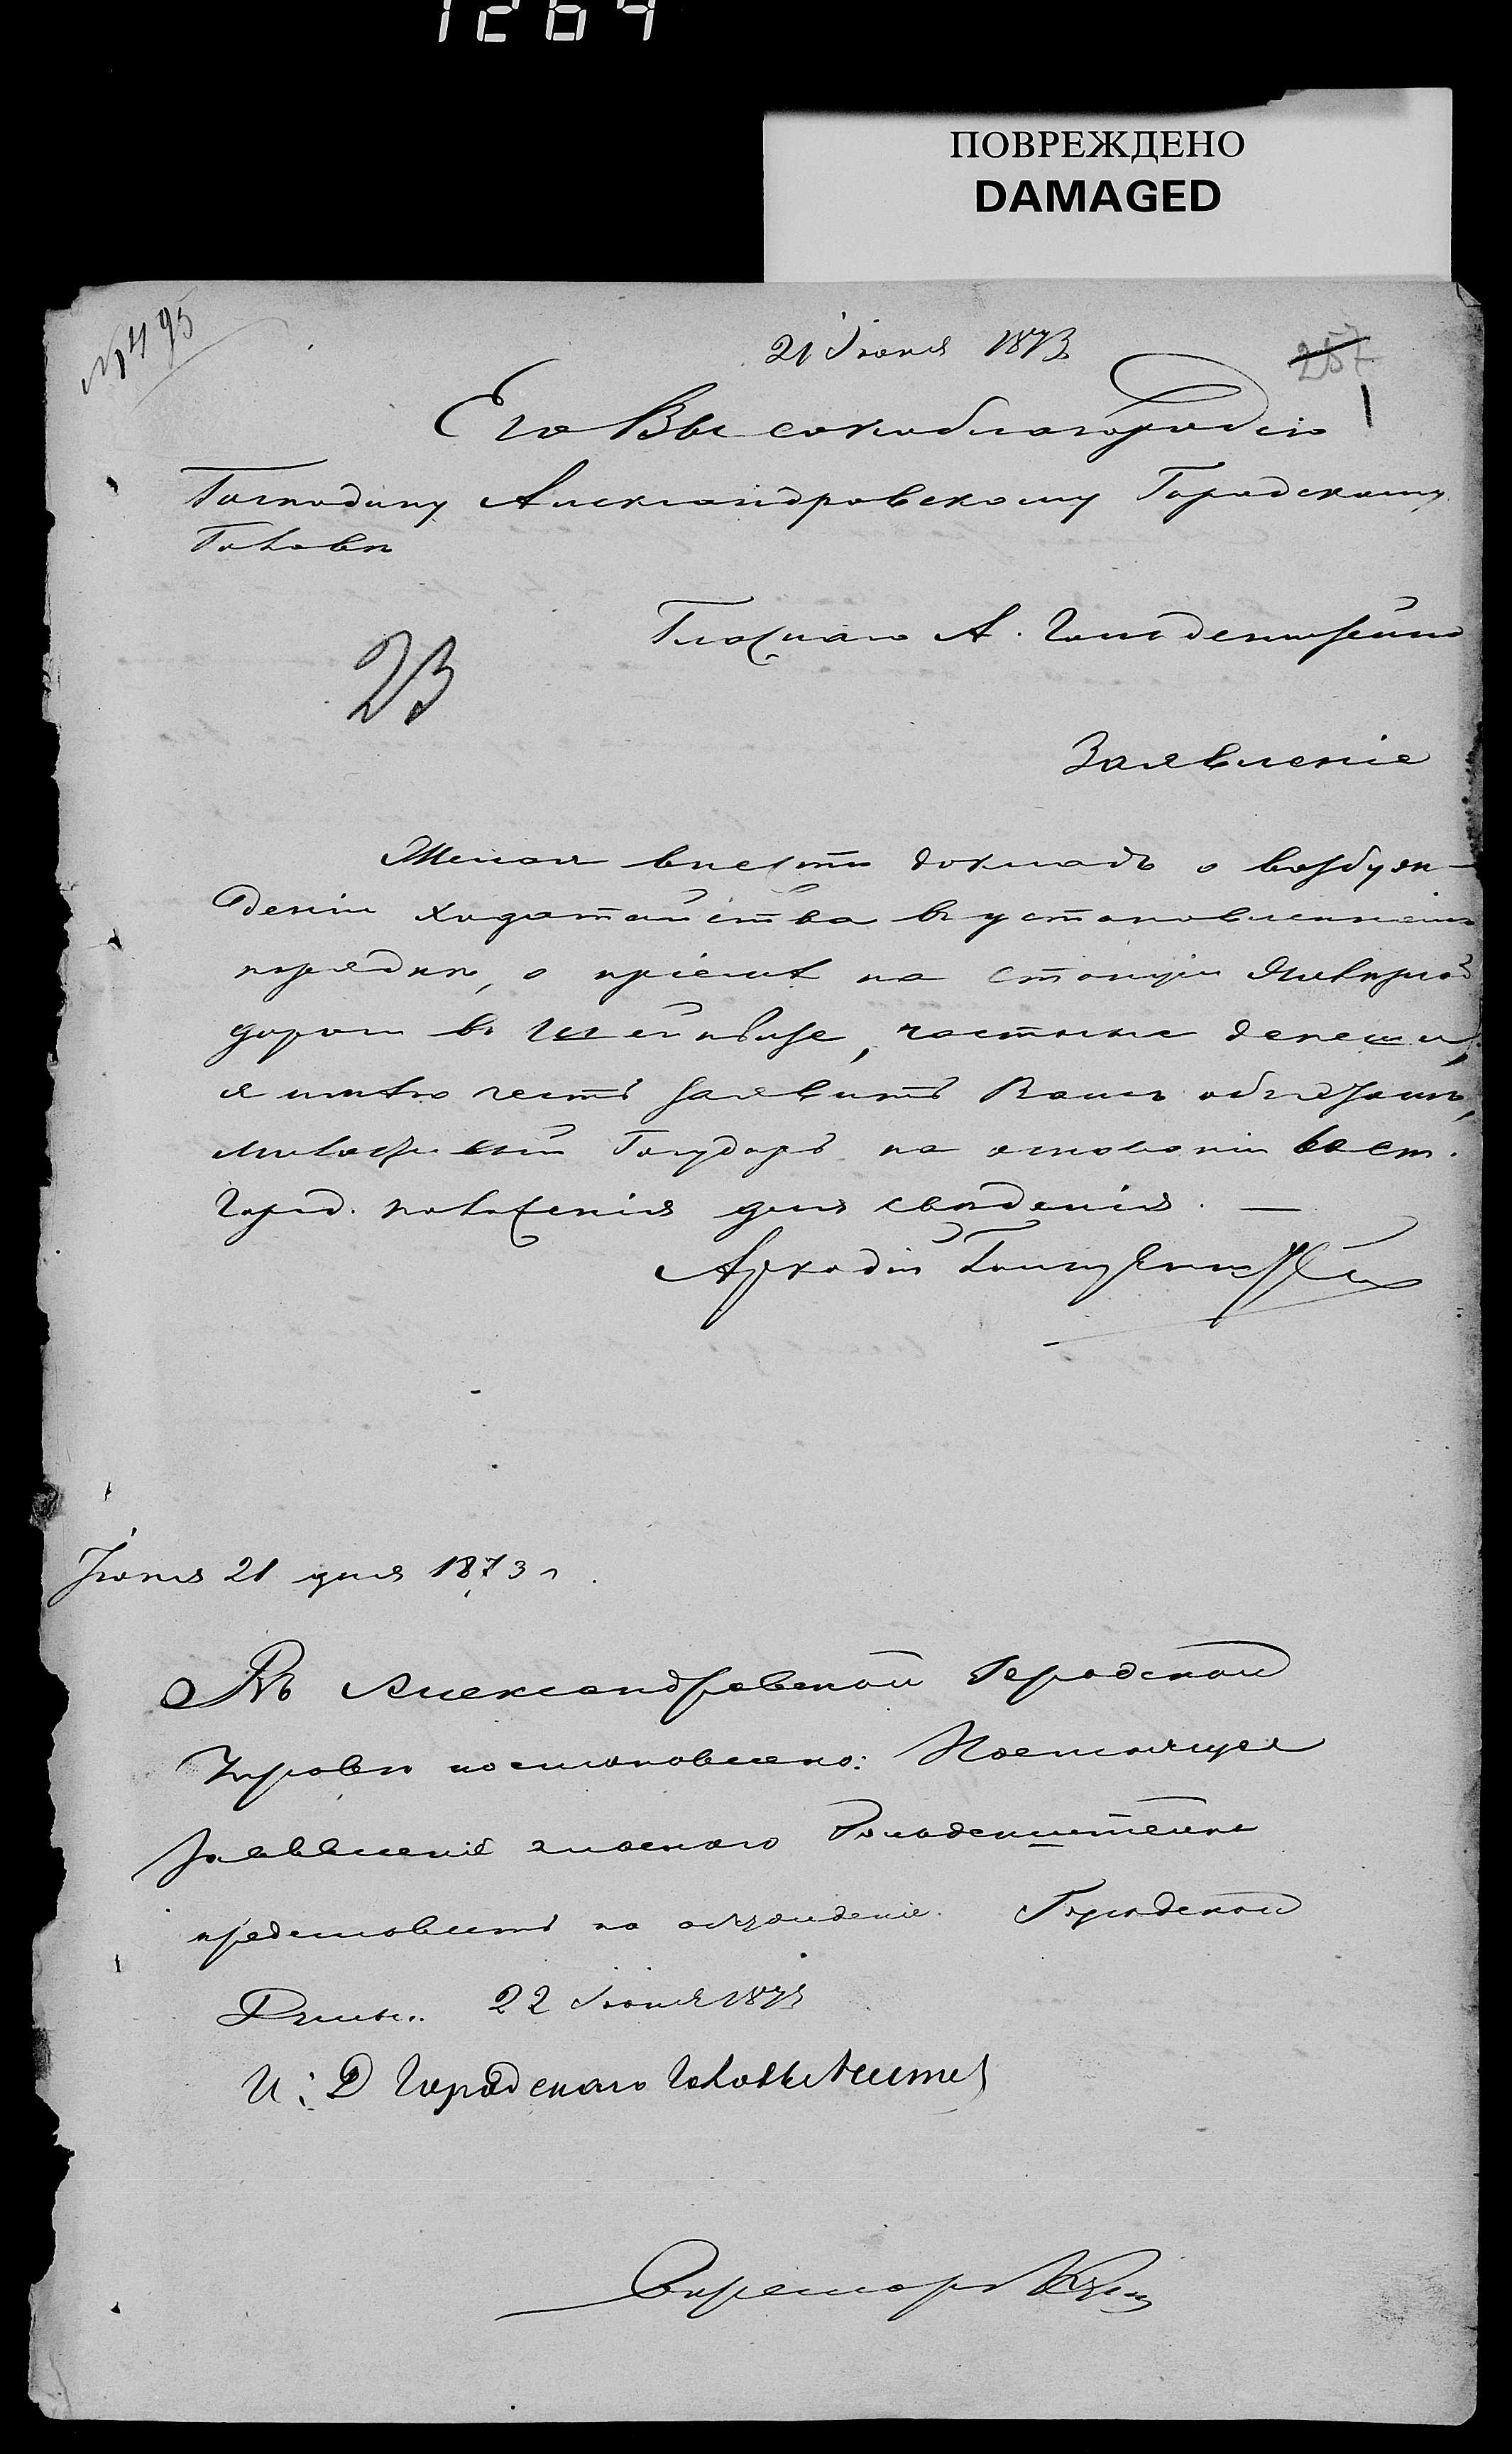 1264
ПОВРЕЖДЕНО
DAMAGED
№ 495
21 Іюня 1873
257
1
Его Высокоблагородію
Господину Александровскому Городскому
Головѣ
23
Гласнаго А. Гольденштейна
Заявленіе
Желая внести докладъ о возбуж-
деніи ходатайства въ установленномъ
порядкѣ, о пріемѣ на станціи желѣзной
дороги въ частныхъ депешъ,
я имѣю честь заявить Вамъ объ этомъ,
Милостивый Государь на основаніи ст.
Город. положенія для свѣденія. —
Аркадій Гольденштейнъ
Іюня 21 дня 1873 г.
Въ Александровской Городской
Управѣ постановлено: Настоящее
заявленіе гласнаго Гольденштейна
представить на обсужденіе Городской
Думы. 22 Іюня 1873
И: Д Городскаго Головы
Секретарь